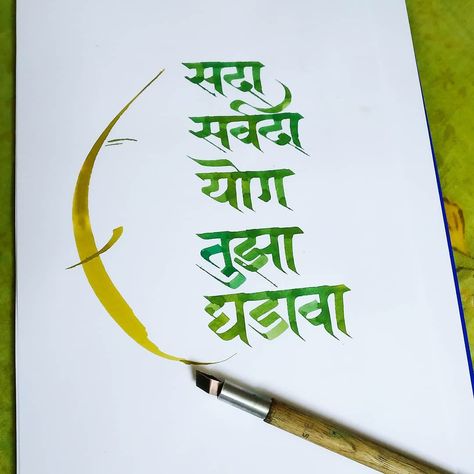 सदा
सर्वदा
योग
तुझा
घडावा